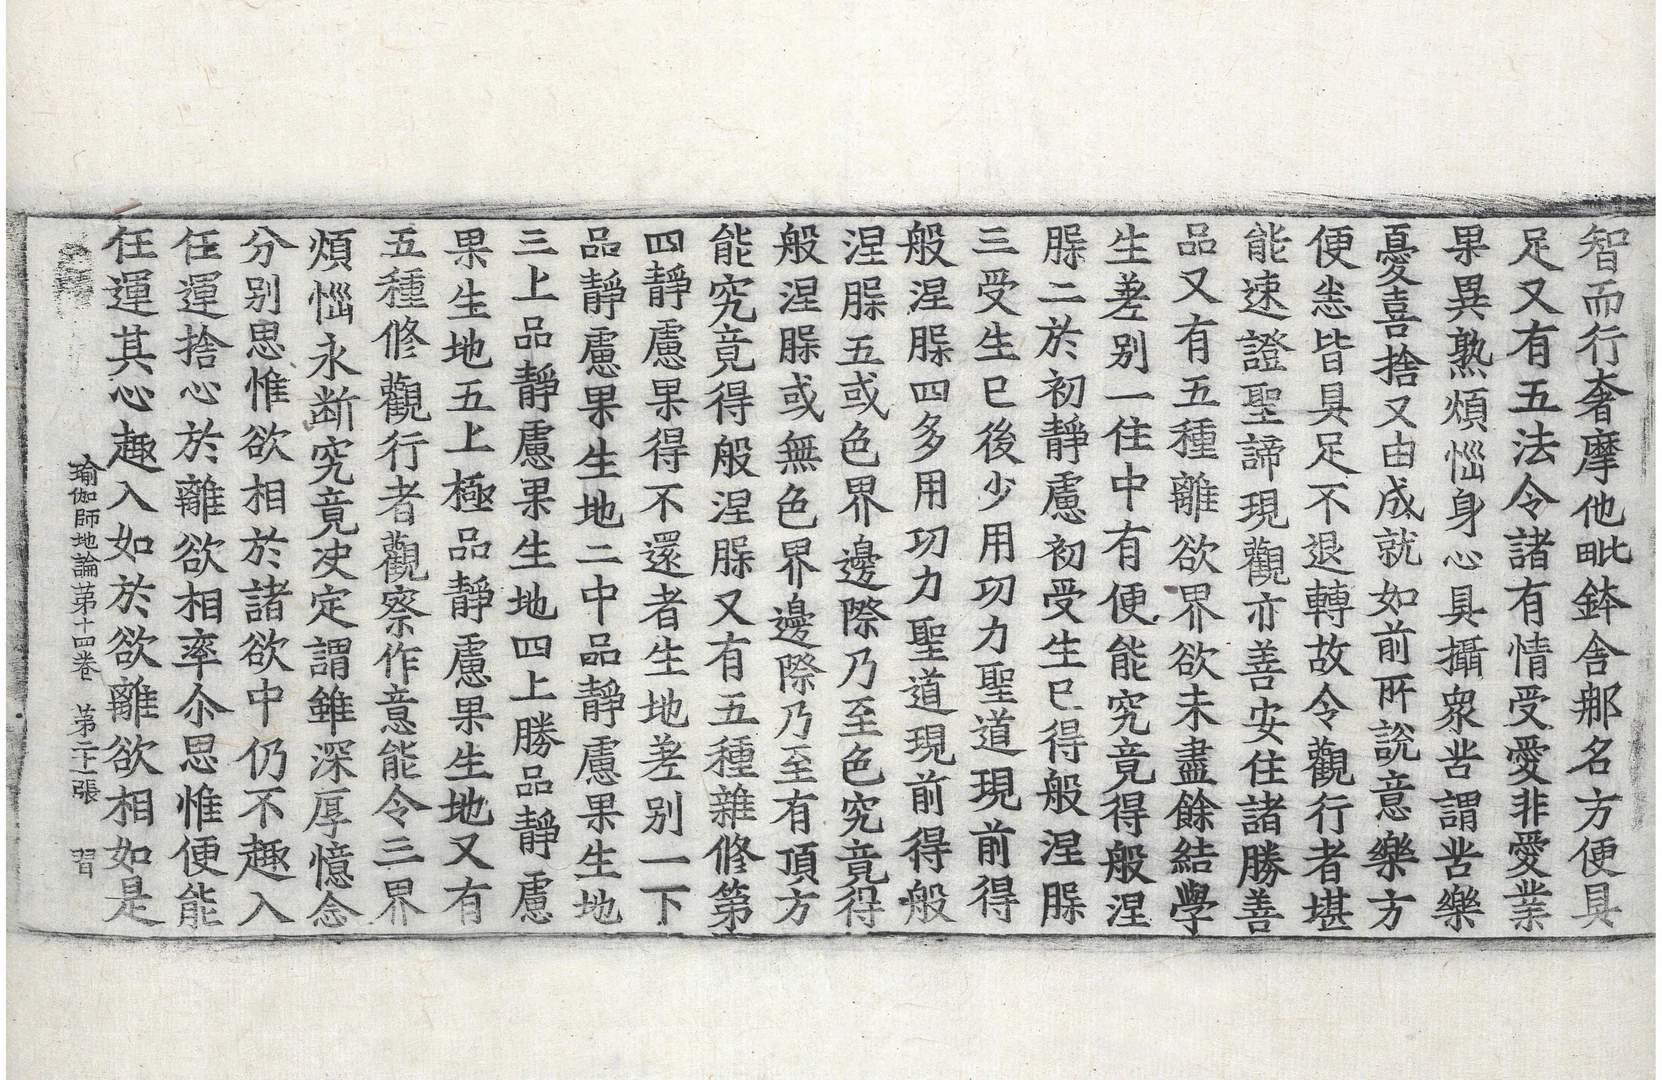 智而行奢摩他毗鉢舍那名方便具
足又有五法令諸有情受愛非愛業
果異熟煩惱身心具攝衆苦謂苦樂
憂喜捨又由成就如前所說意樂方
便悉皆具足不退轉故令觀行者堪
能速證聖諦現觀亦善安住諸勝善
品又有五種離欲界欲未盡餘結學
生差別一住中有便能究竟得般涅
槃二於初靜慮初受生已得般涅槃
三受生已後少用功力聖道現前得
般涅槃四多用功力聖道現前得般
涅槃五或色界邊際乃至色究竟得
般涅槃或無色界邊際乃至有頂方
能究竟得般涅槃又有五種雜修第
四靜慮果得不還者生地差別一下
品靜慮果生地二中品靜慮果生地
三上品靜慮果生地四上勝品靜慮
果生地五上極品靜慮果生地又有
五種修觀行者觀察作意能令三界
煩惱永斷究竟决定謂雖深厚憶念
分別思惟欲相於諸欲中仍不趣入
任運捨心於離欲相率尒思惟便能
任運其心趣入如於欲離欲相如是
瑜伽師地論第十四卷 第二十一張 習